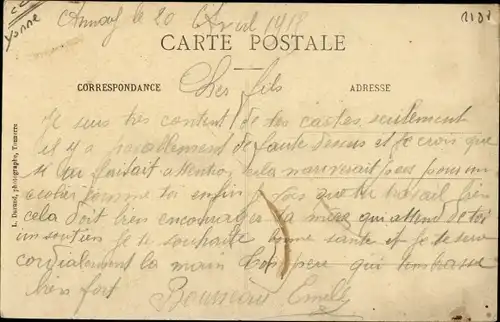 Yonne
le 20 Avril 1918
2188
CARTE POSTALE
CORRESPONDANCE
ADRESSE
Cher fils
Je suis très content de tes cartes seulement
il y a horiblement de faute dessus et je crois que
si tu faisait attention cela n'arriverait pas pour un
écolier comme toi enfin je vois que tu travail bien
cela doit bien encourager ta mère qui attend de toi
un soutien je te souhaite bonne santé et je te serre
cordialement la main ton père qui t'embrasse
bien fort
Emile
L. Durand, photographe, Tonnerre